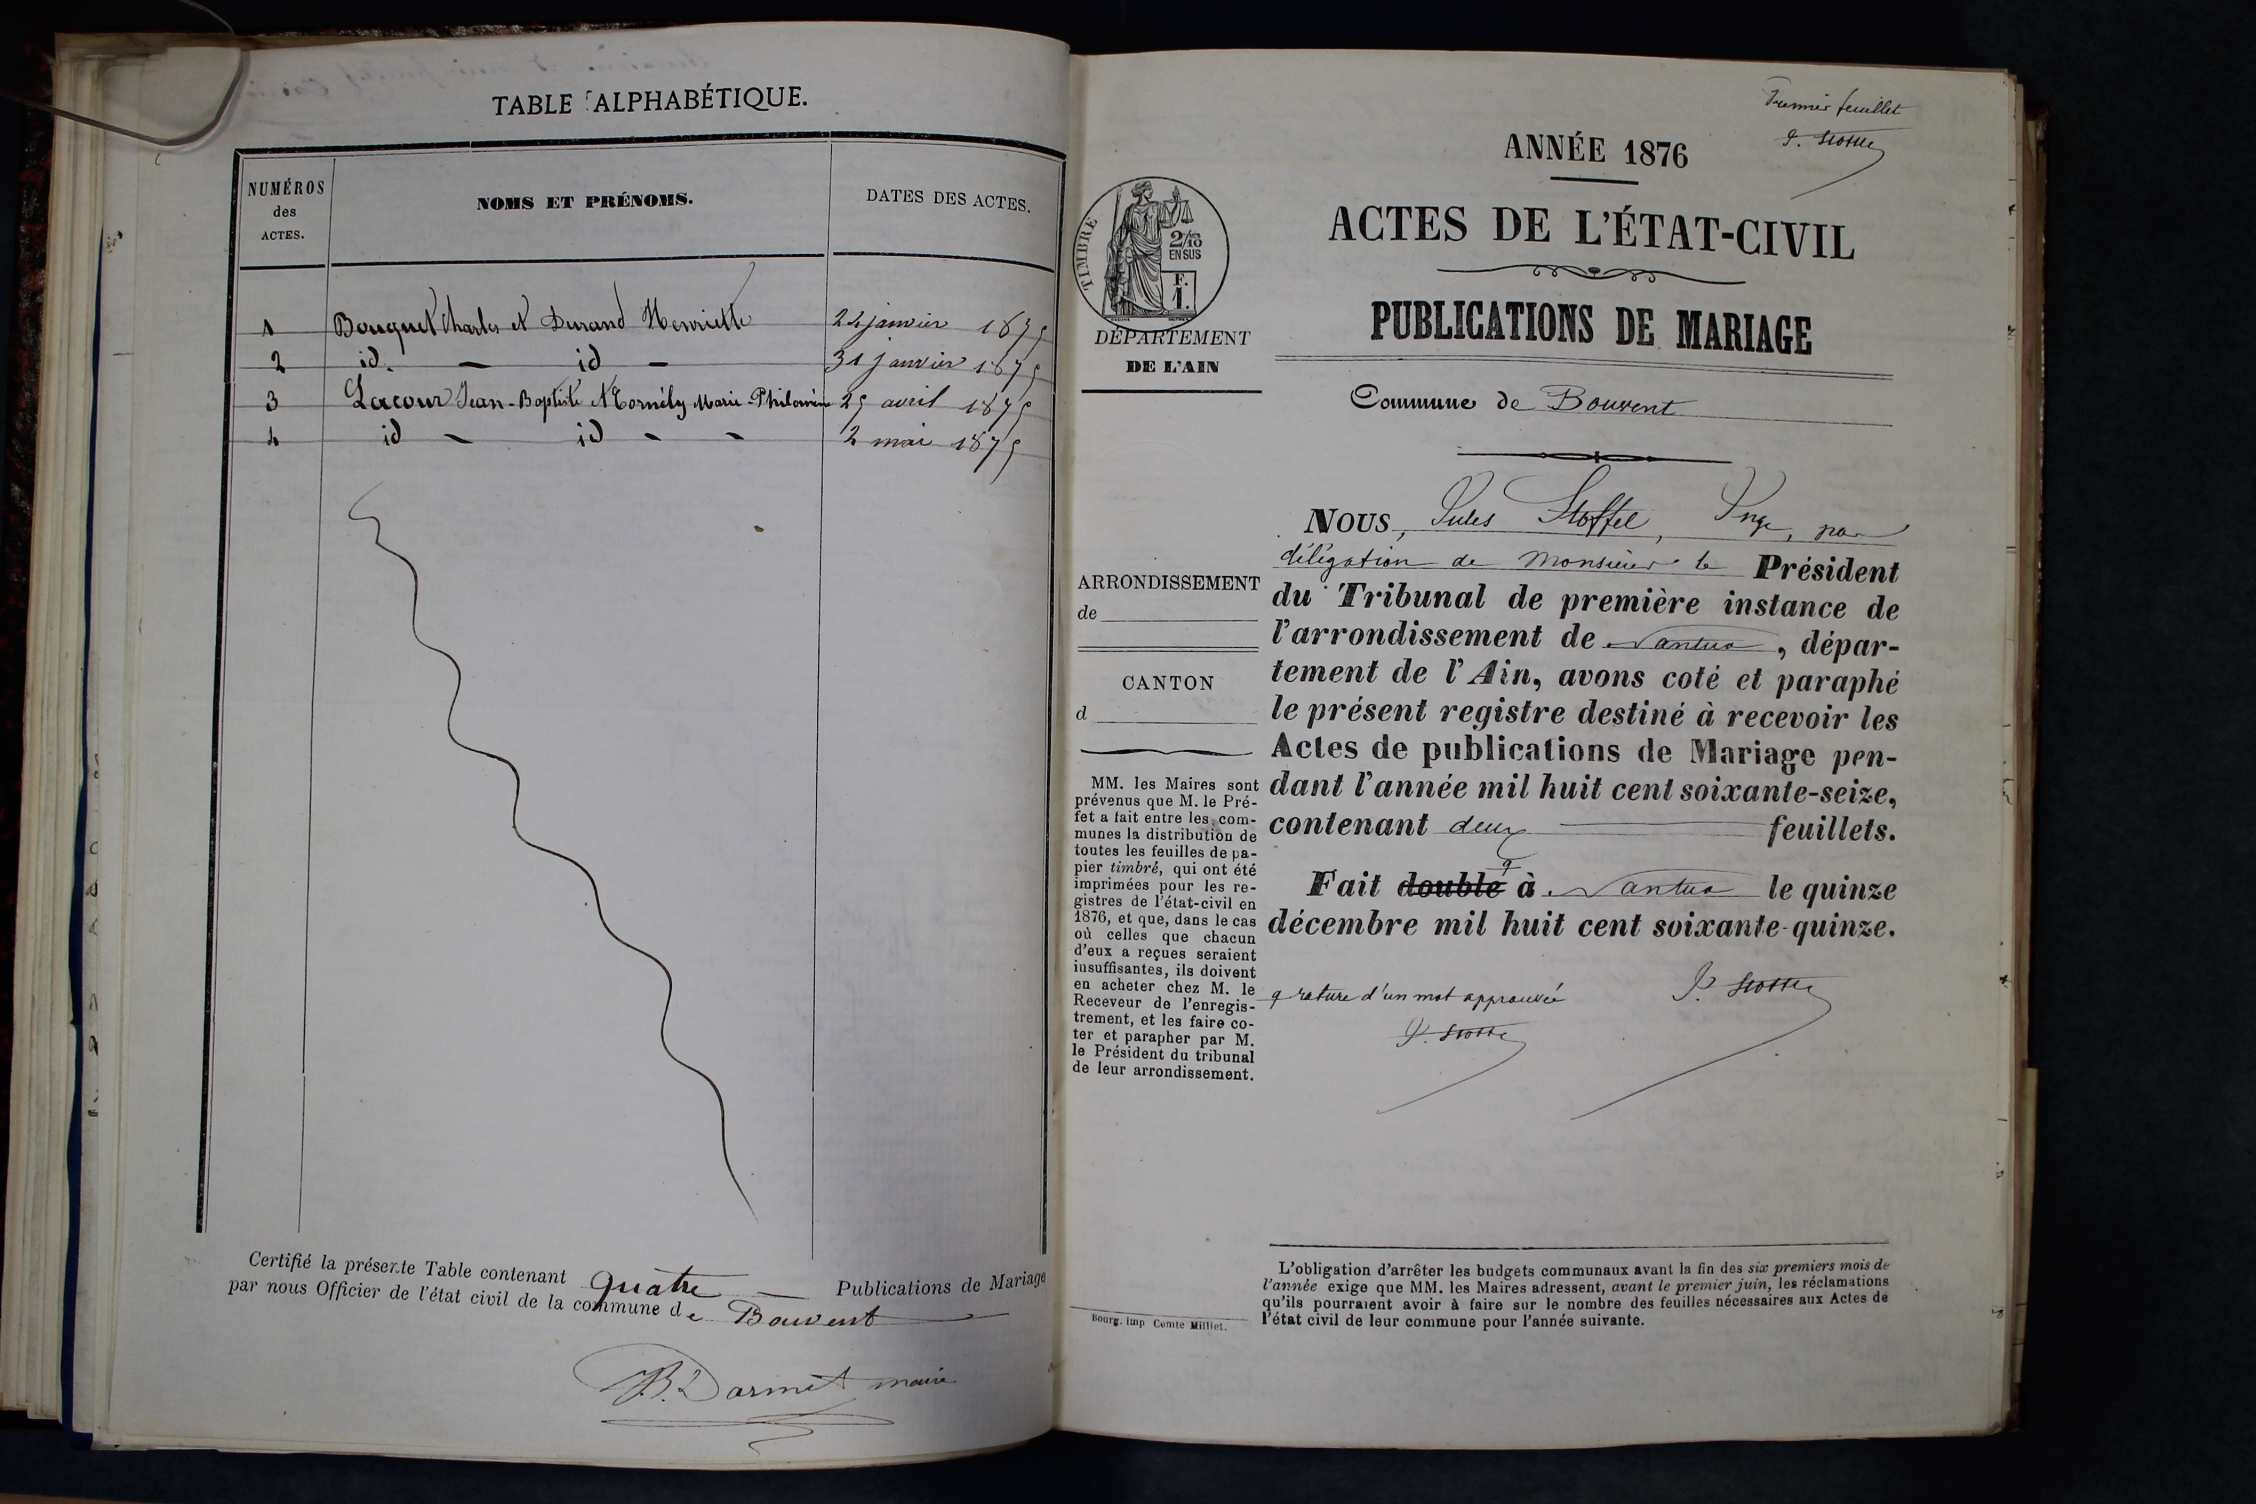 TABLE ALPHABÉTIQUE.
NUMÉROS
des
ACTES.
NOMS ET PRÉNOMS.
DATES DES ACTES.
1 Bouquet Charles et Durand Henriette 24 janvier 1875
2 id. — id — 31 janvier 1875
3 Lacour Jean-Baptiste et Cornély Marie-Philomène 25 avril 1875
4 id - id - - 2 mai 1875
Certifié la présente Table contenant quatre — Publications de Mariage
par nous Officier de l'état civil de la commune de Bouvent
J.B. Darmet maire
Premier feuillet
J. Stoffel
ANNÉE 1876
ACTES DE L'ÉTAT-CIVIL
PUBLICATIONS DE MARIAGE
TIMBRE
2/10
EN SUS
F.
1.
DÉPARTEMENT
DE L'AIN
Commune de Bouvent
ARRONDISSEMENT
de
CANTON
d
MM. les Maires sont
prévenus que M. le Pré-
fet a fait entre les com-
munes la distribution de
toutes les feuilles de pa-
pier timbré, qui ont été
imprimées pour les re-
gistres de l'état-civil en
1876, et que, dans le cas
où celles que chacun
d'eux a reçues seraient
insuffisantes, ils doivent
en acheter chez M. le
Receveur de l'enregis-
trement, et les faire co-
ter et parapher par M.
le Président du tribunal
de leur arrondissement.
NOUS, Jules Stoffel, Juge, par
délégation de Monsieur le Président
du Tribunal de première instance de
l'arrondissement de Nantua, dépar-
tement de l'Ain, avons coté et paraphé
le présent registre destiné à recevoir les
Actes de publications de Mariage pen-
dant l'année mil huit cent soixante-seize,
contenant deux feuillets.
Fait double à Nantua le quinze
décembre mil huit cent soixante-quinze.
rature d'un mot approuvée
J. Stoffel
J. Stoffel
L'obligation d'arrêter les budgets communaux avant la fin des six premiers mois de
l'année exige que MM. les Maires adressent, avant le premier juin, les réclamations
qu'ils pourraient avoir à faire sur le nombre des feuilles nécessaires aux Actes de
l'état civil de leur commune pour l'année suivante.
Bourg. imp Comte Milliet.